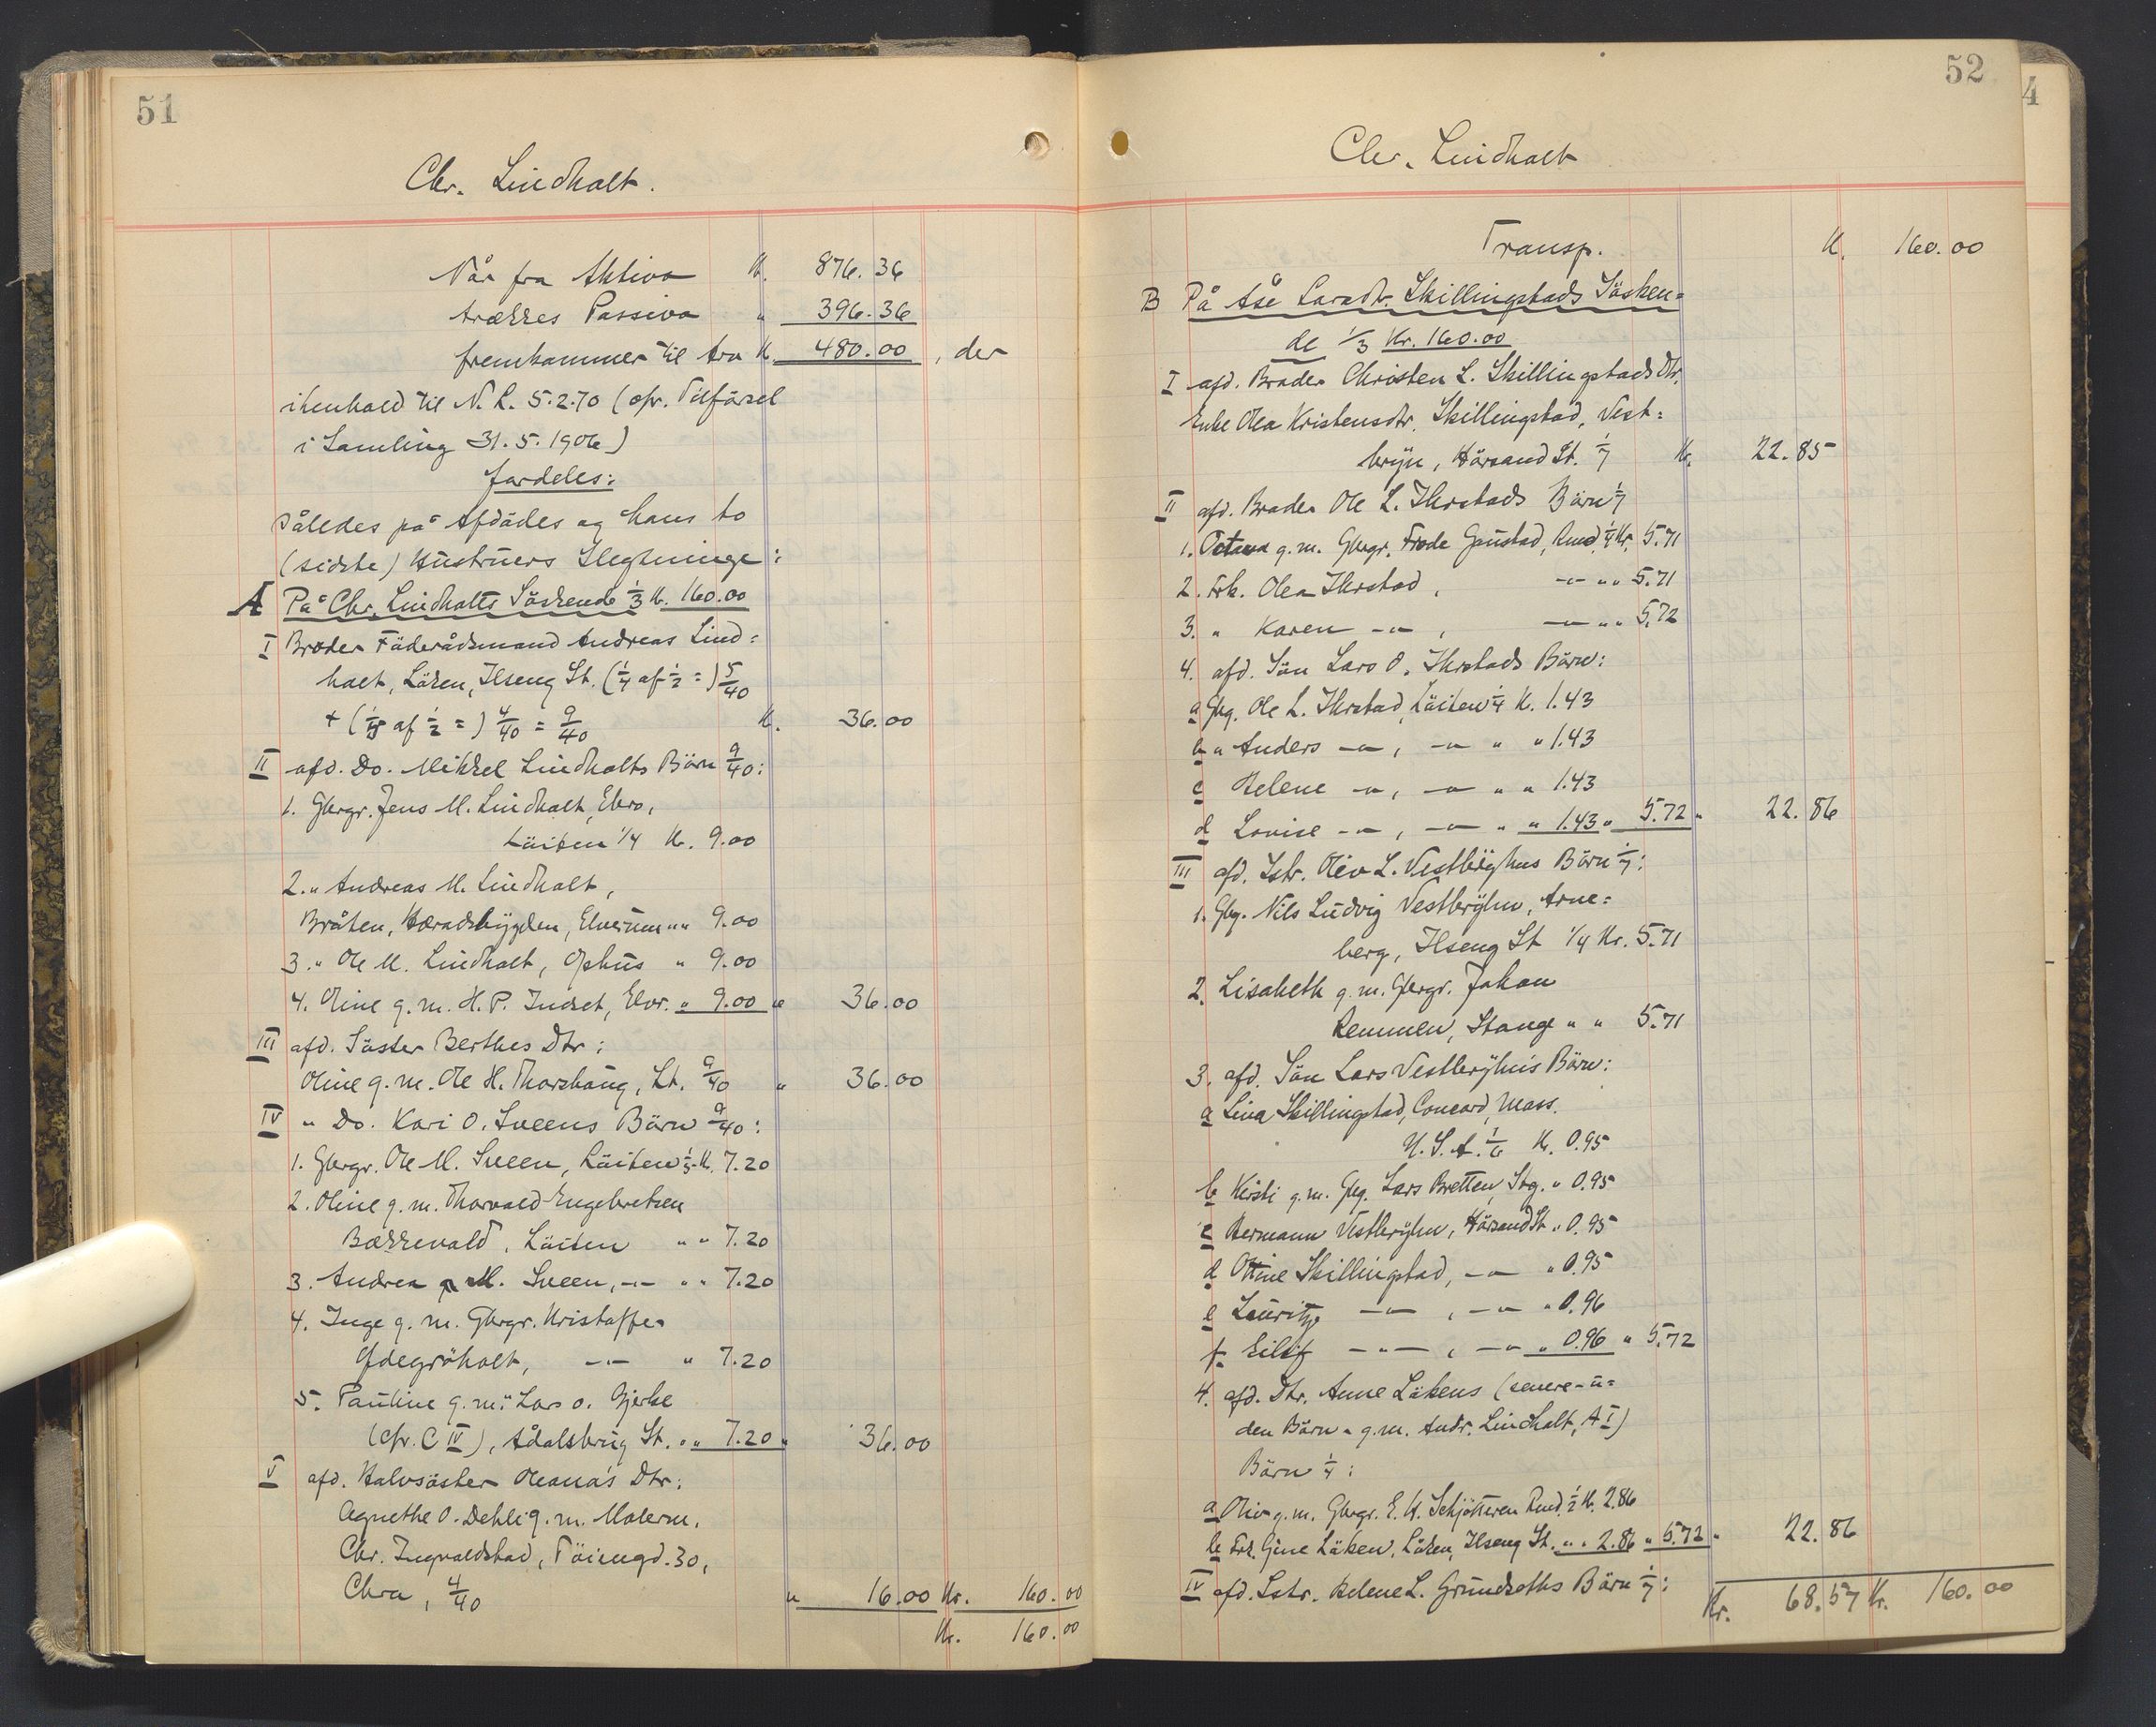 51
Chr. Lindholt.
Når fra Aktiva K. 876.36
trækkes Passiva " 396.36
fremkommer til Arv K. 480.00, der
ihenhold til N. L. 5.2.70 (cfr. Tilførsel
i Samling 31.5.1906)
fordeles:
således på Afdødes og hans to
(sidste) Hustruers Slegtninge:
A På Chr. Lindholts Søskende 1/3 K. 160.00
I Broder Føderådsmand Andreas Lind=
holt, Løken, Ilseng St. (1/4 af 1/2 =) 5/40
+ (1/5 af 1/2 =) 4/40 = 9/40 K. 36.00
II afd. Do. Mikkel Lindholts Börn 9/40:
1. Gbrgr. Jens M. Lindholt, Ebro,
Löiten 1/4 Kr. 9.00
2. " Andreas M. Lindholt,
Bråten, Hæradsbygden, Elverum " " 9.00
3. " Ole M. Lindholt, Ophus " 9.00
4. Oline g. m. H. P. Indset, Elvr. " 9.00 " 36.00
III afd. Söster Berthes Dtr:
Oline g. m. Ole H. Thorshaug, Lt. 9/40 " 36.00
IV " Do. Kari O. Sveens Börn 9/40:
1. Gbrgr. Ole M. Sveen, Löiten 1/5 K. 7.20
2. Oline g. m. Thorvald Engebretsen
Bækkevold, Löiten " " 7.20
3. Andrea M. Sveen, -"- " " 7.20
4. Inge g. m. Gbrgr. Kristoffer
Ofdegröholt, -"- " 7.20
5. Pauline g. m. Lars O. Gjerke
(cfr. C IV), Ådalsbrug St. " " 7.20 " 36.00
V afd. Halvsöster Oleana's Dtr:
Agnethe O. Dehli g. m. Malerm.
Chr. Ingvaldstad, Töiengd. 30,
Chra, 4/40 " 16.00 Kr. 160.00
Kr. 160.00
52
Chr. Lindholt
Transp. K. 160.00
B På Åse Larsdtr. Skillingstads Søsken=
de 1/3 Kr. 160.00
I afd. Broder Christen L. Skillingstads Dtr.
Enke Olea Kristensdtr. Skillingstad, Vest=
bryn, Hörsand St. 1/7 Kr. 22.85
II afd. Broder Ole L. Ihrstads Börn 1/7
1. Octava g. m. Gbrgr. Frode Gaustad, Rmd, 1/4 Kr. 5.71
2. Frk. Olea Ihrstad, -"- " " 5.71
3. " Karen -"-, -"- " " 5.72
4. afd. Sön Lars O. Ihrstads Börn:
a Gbg. Ole L. Ihrstad, Löiten 1/4 K. 1.43
b " Anders -"-, -"- " " 1.43
c Helene -"-, -"- " " 1.43
d Lovise -"-, -"- " " 1.43 " 5.72 " 22.86
III afd. Sstr. Oliv L. Vestbryhns Börn 1/7:
1. Gbg. Nils Ludvig Vestbryhn, Arne=
berg, Ilseng St 1/4 Kr. 5.71
2. Lisabeth g. m. Gbrgr. Johan
Remmen, Stange " " 5.71
3. afd. Sön Lars Vestbryhn's Börn:
a Lina Skillingstad, Concord, Mass.
U. S. A. 1/6 K. 0.95
b Kirsti g. m. Gbg. Lars Bretten, Stg. " 0.95
c Hermann Vestbryhn, Hörsand St. " 0.95
d Ottine Skillingstad, -"- " 0.95
e Lauritz -"-, -"- " 0.96
f Eilif -"-, -"- " 0.96 " 5.72
4. afd. Dtr. Anne Løkens (senere - u=
den Börn - g. m. Andr. Lindholt, A I)
Börn 1/4:
a Oliv g. m. Gbrgr. E. H. Schjötteren Rmd. 1/2 K. 2.86
b Frk. Gine Løken, Løken, Ilseng St. " " 2.86 " 5.72 " 22.86
IV afd. Sstr. Helene L. Grundseths Börn 1/7:
Kr. 68.57 Kr. 160.00